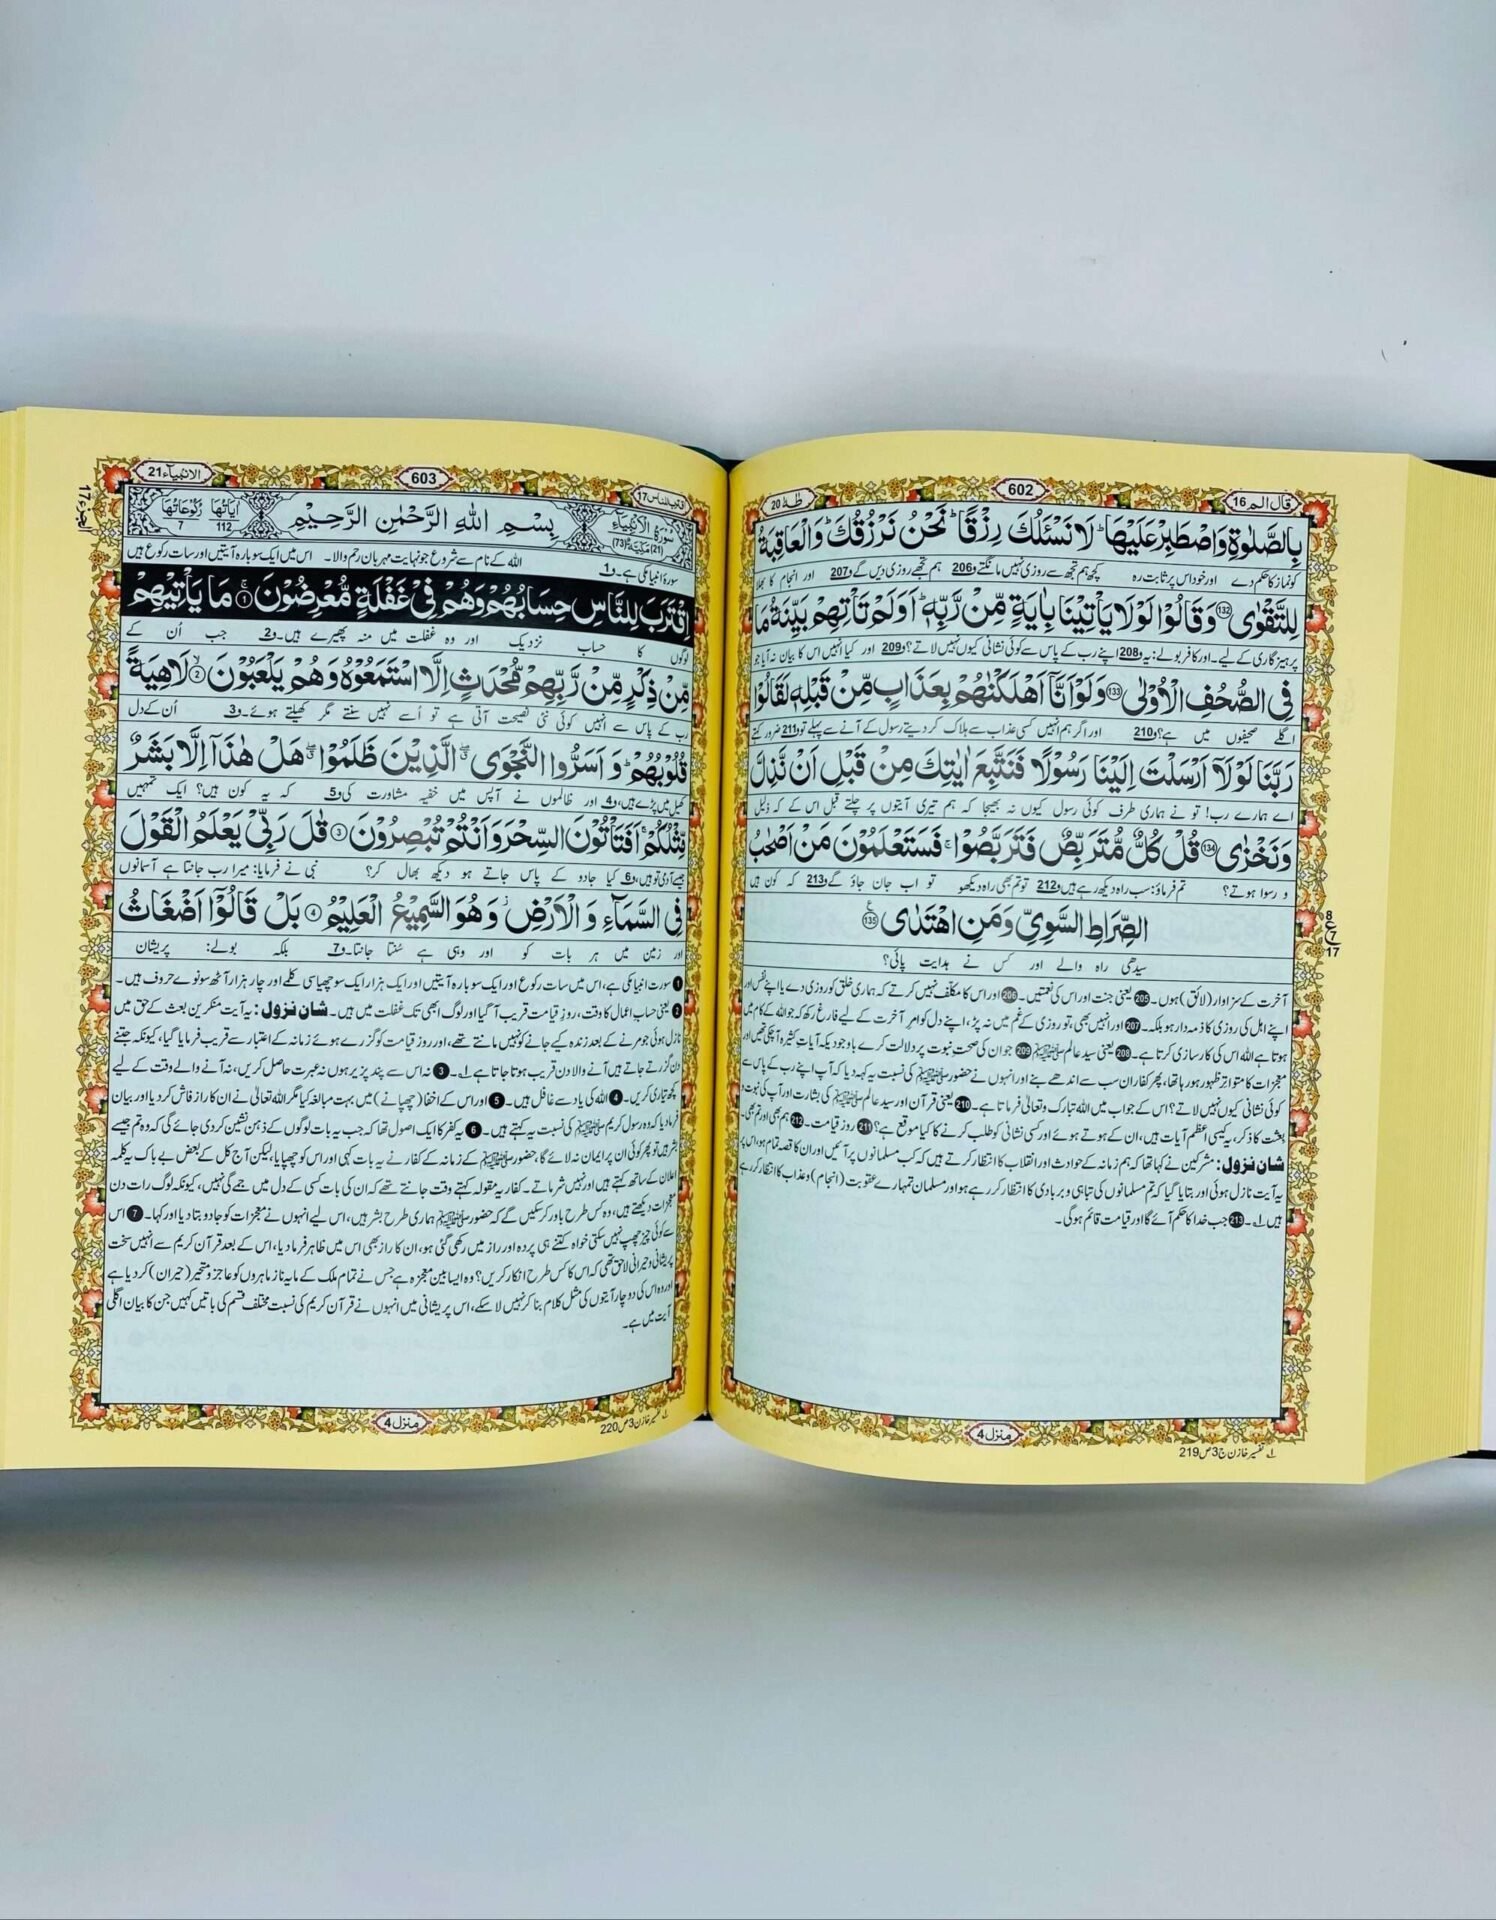 قال الم 16
602
طٰهٰ 20
بِالصَّلٰوةِ وَاصْطَبِرْ عَلَيْهَا ؕ لَا نَسْـَٔلُكَ رِزْقًا ؕ نَحْنُ نَرْزُقُكَ ؕ وَالْعَاقِبَةُ
کو نماز کا حکم دے اور خود اس پر ثابت رہ کچھ ہم تجھ سے روزی نہیں مانگتے و206 ہم تجھے روزی دیں گے و207 اور انجام کا بھلا
لِلتَّقْوٰى ﴿132﴾ وَقَالُوْا لَوْلَا يَاْتِيْنَا بِاٰيَةٍ مِّنْ رَّبِّهٖ ؕ اَوَلَمْ تَاْتِهِمْ بَيِّنَةُ مَا
پرہیزگاری کے لیے۔ اور کافر بولے: یہ و208 اپنے رب کے پاس سے کوئی نشانی کیوں نہیں لاتے؟ و209 اور کیا انہیں اس کا بیان نہ آیا جو
فِي الصُّحُفِ الْاُوْلٰى ﴿133﴾ وَلَوْ اَنَّاۤ اَهْلَكْنٰهُمْ بِعَذَابٍ مِّنْ قَبْلِهٖ لَقَالُوْا
اگلے صحیفوں میں ہے؟ و210 اور اگر ہم انہیں کسی عذاب سے ہلاک کر دیتے رسول کے آنے سے پہلے تو و211 ضرور کہتے
رَبَّنَا لَوْلَاۤ اَرْسَلْتَ اِلَيْنَا رَسُوْلًا فَنَتَّبِعَ اٰيٰتِكَ مِنْ قَبْلِ اَنْ نَّذِلَّ
اے ہمارے رب! تو نے ہماری طرف کوئی رسول کیوں نہ بھیجا کہ ہم تیری آیتوں پر چلتے قبل اس کے کہ ذلیل
وَنَخْزٰى ﴿134﴾ قُلْ كُلٌّ مُّتَرَبِّصٌ فَتَرَبَّصُوْا ۚ فَسَتَعْلَمُوْنَ مَنْ اَصْحٰبُ
و رسوا ہوتے؟ تم فرماؤ: سب راہ دیکھ رہے ہیں و212 تو تم بھی راہ دیکھو تو اب جان جاؤ گے و213 کہ کون ہیں
الصِّرَاطِ السَّوِيِّ وَمَنِ اهْتَدٰى ﴿135﴾
سیدھی راہ والے اور کس نے ہدایت پائی؟
8
ع
7
17
آخرت کے سزاوار (لائق) ہوں۔ 205 یعنی جنت اور اس کی نعمتیں۔ 206 اور اس کا مکلف نہیں کرتے کہ ہماری خلق کو روزی دے یا اپنے نفس اور
اپنے اہل کی روزی کا ذمہ دار ہو بلکہ۔ 207 اور انہیں بھی، تو روزی کے غم میں نہ پڑ، اپنے دل کو امرِ آخرت کے لیے فارغ رکھ کہ جو اللہ کے کام میں
ہوتا ہے اللہ اس کی کارسازی کرتا ہے۔ 208 یعنی سید عالم ﷺ 209 جو ان کی صحتِ نبوت پر دلالت کرے باوجودیکہ آیاتِ کثیرہ آ چکی تھیں اور
معجزات کا متواتر ظہور ہو رہا تھا، پھر کفار ان سب سے اندھے بنے اور انہوں نے حضور ﷺ کی نسبت یہ کہہ دیا کہ آپ اپنے رب کے پاس سے
کوئی نشانی کیوں نہیں لاتے؟ اس کے جواب میں اللہ تبارک وتعالیٰ فرماتا ہے۔ 210 یعنی قرآن اور سید عالم ﷺ کی بشارت اور آپ کی نبوت و
بعثت کا ذکر، یہ کیسی اعظم آیات ہیں، ان کے ہوتے ہوئے اور کسی نشانی کو طلب کرنے کا کیا موقع ہے؟ 211 روز قیامت۔ 212 ہم بھی اور تم بھی۔
شانِ نزول: مشرکین نے کہا تھا کہ ہم زمانہ کے حوادث اور انقلاب کا انتظار کرتے ہیں کہ کب مسلمانوں پر آئیں اور ان کا قصہ تمام ہو، اس پر
یہ آیت نازل ہوئی اور بتایا گیا کہ تم مسلمانوں کی تباہی و بربادی کا انتظار کر رہے ہو اور مسلمان تمہارے عقوبت (انجام) و عذاب کا انتظار کر رہے
ہیں لے۔ 213 جب خدا کا حکم آئے گا اور قیامت قائم ہوگی۔
منزل 4
لے تفسیر خازن ج 3 ص 219
اقترب للناس 17
603
الانبیآء 21
سورۃ الانبیآء (21) مکیۃ (73)
بِسْمِ اللّٰهِ الرَّحْمٰنِ الرَّحِيْمِ
اٰیاتها 112 رکوعاتها 7
سورۂ انبیا مکی ہے۔ و1 اللہ کے نام سے شروع جو نہایت مہربان رحم والا۔ اس میں ایک سو بارہ آیتیں اور سات رکوع ہیں
اِقْتَرَبَ لِلنَّاسِ حِسَابُهُمْ وَهُمْ فِيْ غَفْلَةٍ مُّعْرِضُوْنَ ﴿1﴾ مَا يَاْتِيْهِمْ
لوگوں کا حساب نزدیک اور وہ غفلت میں منہ پھیرے ہیں۔ و2 جب اُن کے
مِّنْ ذِكْرٍ مِّنْ رَّبِّهِمْ مُّحْدَثٍ اِلَّا اسْتَمَعُوْهُ وَهُمْ يَلْعَبُوْنَ ﴿2﴾ لَاهِيَةً
رب کے پاس سے انہیں کوئی نئی نصیحت آتی ہے تو اُسے نہیں سنتے مگر کھیلتے ہوئے۔ و3 اُن کے دل
قُلُوْبُهُمْ ؕ وَاَسَرُّوا النَّجْوَى ۖ الَّذِيْنَ ظَلَمُوْا ۖ هَلْ هٰذَاۤ اِلَّا بَشَرٌ
کھیل میں پڑے ہیں، و4 اور ظالموں نے آپس میں خفیہ مشاورت کی و5 کہ یہ کون ہیں؟ ایک تمہیں
مِّثْلُكُمْ ۚ اَفَتَاْتُوْنَ السِّحْرَ وَاَنْتُمْ تُبْصِرُوْنَ ﴿3﴾ قٰلَ رَبِّيْ يَعْلَمُ الْقَوْلَ
جیسے آدمی تو ہیں، و6 کیا جادو کے پاس جاتے ہو دیکھ بھال کر؟ نبی نے فرمایا: میرا رب جانتا ہے آسمانوں
فِي السَّمَآءِ وَالْاَرْضِ ۫ وَهُوَ السَّمِيْعُ الْعَلِيْمُ ﴿4﴾ بَلْ قَالُوْۤا اَضْغَاثُ
اور زمین میں ہر بات کو اور وہی ہے سُنتا جانتا۔ و7 بلکہ بولے: پریشان
1 سورت انبیا مکی ہے، اس میں سات رکوع اور ایک سو بارہ آیتیں اور ایک ہزار ایک سو چھیاسی کلمے اور چار ہزار آٹھ سو نوے حروف ہیں۔
2 یعنی حسابِ اعمال کا وقت، روز قیامت قریب آ گیا اور لوگ ابھی تک غفلت میں ہیں۔ شانِ نزول: یہ آیت منکرین بعث کے حق میں
نازل ہوئی جو مرنے کے بعد زندہ کیے جانے کو نہیں مانتے تھے، اور روز قیامت کو گزرے ہوئے زمانہ کے اعتبار سے قریب فرمایا گیا، کیونکہ جتنے
دن گزرتے جاتے ہیں آنے والا دن قریب ہوتا جاتا ہے لے۔ 3 نہ اس سے پند پزیر ہوں نہ عبرت حاصل کریں، نہ آنے والے وقت کے لیے
کچھ تیاری کریں۔ 4 اللہ کی یاد سے غافل ہیں۔ 5 اور اس کے اخفا (چھپانے) میں بہت مبالغہ کیا مگر اللہ تعالیٰ نے ان کا راز فاش کر دیا اور بیان
فرما دیا کہ وہ رسول کریم ﷺ کی نسبت یہ کہتے ہیں۔ 6 یہ کفر کا ایک اصول تھا کہ جب یہ بات لوگوں کے ذہن نشین کر دی جائے گی کہ وہ تم جیسے
بشر ہیں تو پھر کوئی ان پر ایمان نہ لائے گا، حضور ﷺ کے زمانہ کے کفار نے یہ بات کہی اور اس کو چھپایا، لیکن آج کل کے بعض بے باک یہ کلمہ
اعلان کے ساتھ کہتے ہیں اور نہیں شرماتے۔ کفار یہ مقولہ کہتے وقت جانتے تھے کہ ان کی بات کسی کے دل میں جمے گی نہیں، کیونکہ لوگ رات دن
معجزات دیکھتے ہیں، وہ کس طرح باور کر سکیں گے کہ حضور ﷺ ہماری طرح بشر ہیں، اس لیے انہوں نے معجزات کو جادو بتا دیا اور کہا۔ 7 اس
سے کوئی چیز چھپ نہیں سکتی خواہ کتنے ہی پردہ اور راز میں رکھی گئی ہو، ان کا راز بھی اس میں ظاہر فرما دیا، اس کے بعد قرآن کریم سے انہیں سخت
پریشانی و حیرانی لاحق تھی کہ اس کا کس طرح انکار کریں؟ وہ ایسا بین معجزہ ہے جس نے تمام ملک کے مایہ ناز ماہروں کو عاجز و متحیر (حیران) کر دیا ہے
اور وہ اس کی دو چار آیتوں کی مثل کلام بنا کر نہیں لا سکے، اس پریشانی میں انہوں نے قرآن کریم کی نسبت مختلف قسم کی باتیں کہیں جن کا بیان اگلی
آیت میں ہے۔
منزل 4
لے تفسیر خازن 3 ص 220
الجزء 17